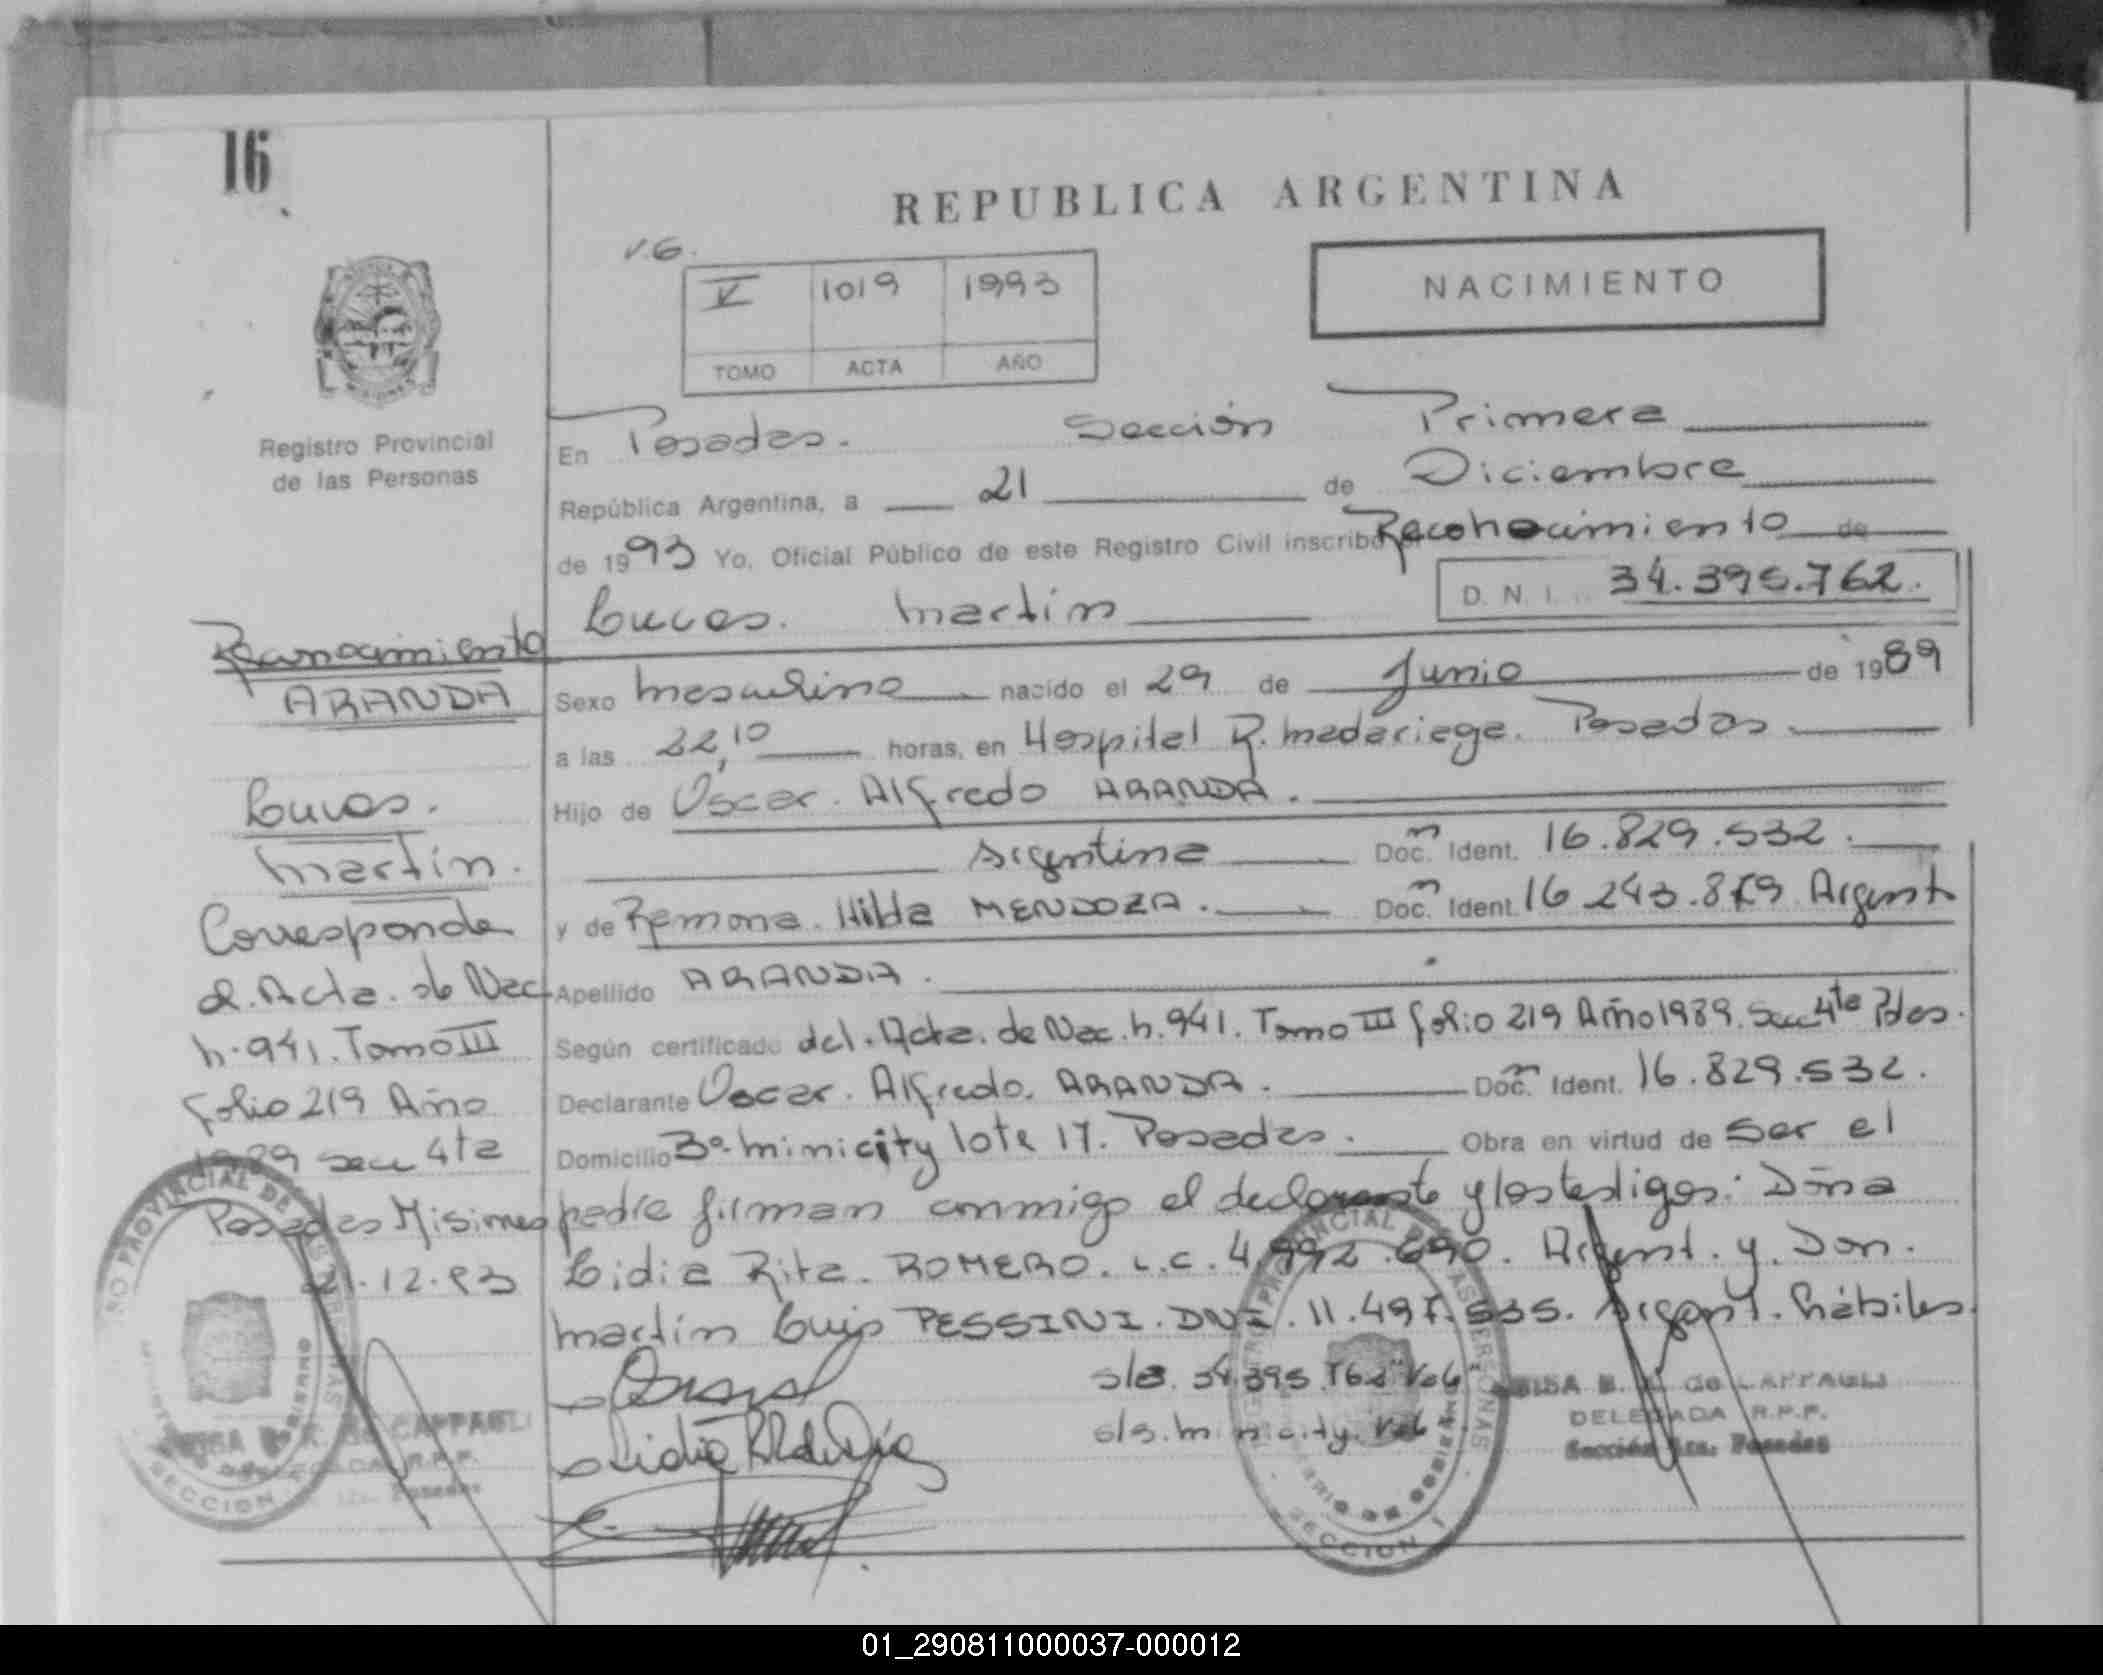 16
REPUBLICA ARGENTINA
V.G.
V 1019 1993
TOMO ACTA AÑO
NACIMIENTO
Registro Provincial
de las Personas
En Posadas. Sección Primera
República Argentina, a 21 de Diciembre
de 1993 Yo, Oficial Público de este Registro Civil inscribo Reconocimiento de
Lucas. Martín D. N. I. 34.395.762.
Sexo Masculino nacido el 29 de Junio de 1989
a las 22,10 horas, en Hospital R. Madariaga. Posadas.
Hijo de Oscar. Alfredo ARANDA.
Argentina Doc. Ident. 16.829.532.
y de Ramona. Hilda MENDOZA. Doc. Ident. 16 243.879 Argent
Apellido ARANDA.
Según certificado del. Acta. de Nac. n. 941. Tomo III folio 219 Año 1989. Secc 4ta Pdas.
Declarante Oscar. Alfredo. ARANDA. Doc. Ident. 16.829.532.
Domicilio 3º minicity lote 17. Posadas. Obra en virtud de ser el
padre firman conmigo el declarante y los testigos: Doña
Lidia Rita. ROMERO. L.C. 4.992.690. Argent. y. Don.
Martín Luis PESSINI. DNI. 11.497.535. Argent. hábiles.
s/r. 34.395.762 "Vale"
s/r. minicity. Vale
DELEGADA R.P.P.
Sección 1ra. Posadas
Reconocimiento
ARANDA
Lucas.
Martín.
Corresponde
a. Acta. de Nac
n. 941. Tomo III
folio 219 Año
1989 secc 4ta
Posadas Misiones
21.12.93
SECCION
SECCION 1
01_290811000037-000012